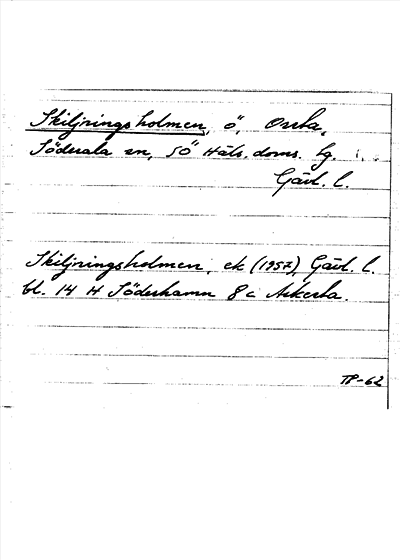 Skiljningsholmen, ö, Orrba,
Söderala sn, SÖ Häls. doms. tg.
Gävl. l.
Skiljningsholmen, ek (1957), Gävl. l.
bl. 14 H Söderhamn 8 c Askerba.
TP-62